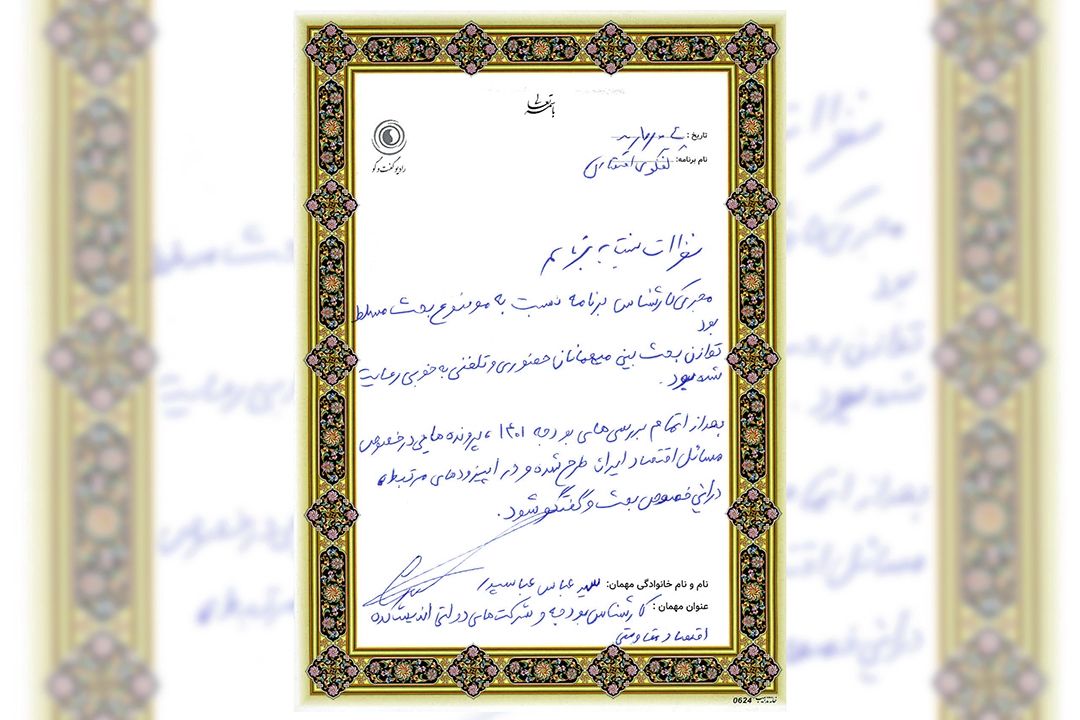 باسمه تعالی
رادیو گفت و گو
تاریخ:
نام برنامه: گفتگوی اقتصادی
نظرات نسبت به برنامه
مجری کارشناس برنامه نسبت به موضوع بحث مسلط
بود
توازن بحث بین میهمانان حضوری و تلفنی به خوبی رعایت
شده بود.
بعد از اتمام بررسی های بودجه ۱۴۰۱، پرونده هایی در خصوص
مسائل اقتصاد ایران طرح شده و در اپیزودهای مرتبط
در این خصوص بحث و گفتگو شود.
نام و نام خانوادگی مهمان: سید عباس عباسپور
عنوان مهمان: کارشناس بودجه و شرکت های دولتی اندیشکده
اقتصاد مقاومتی
0624